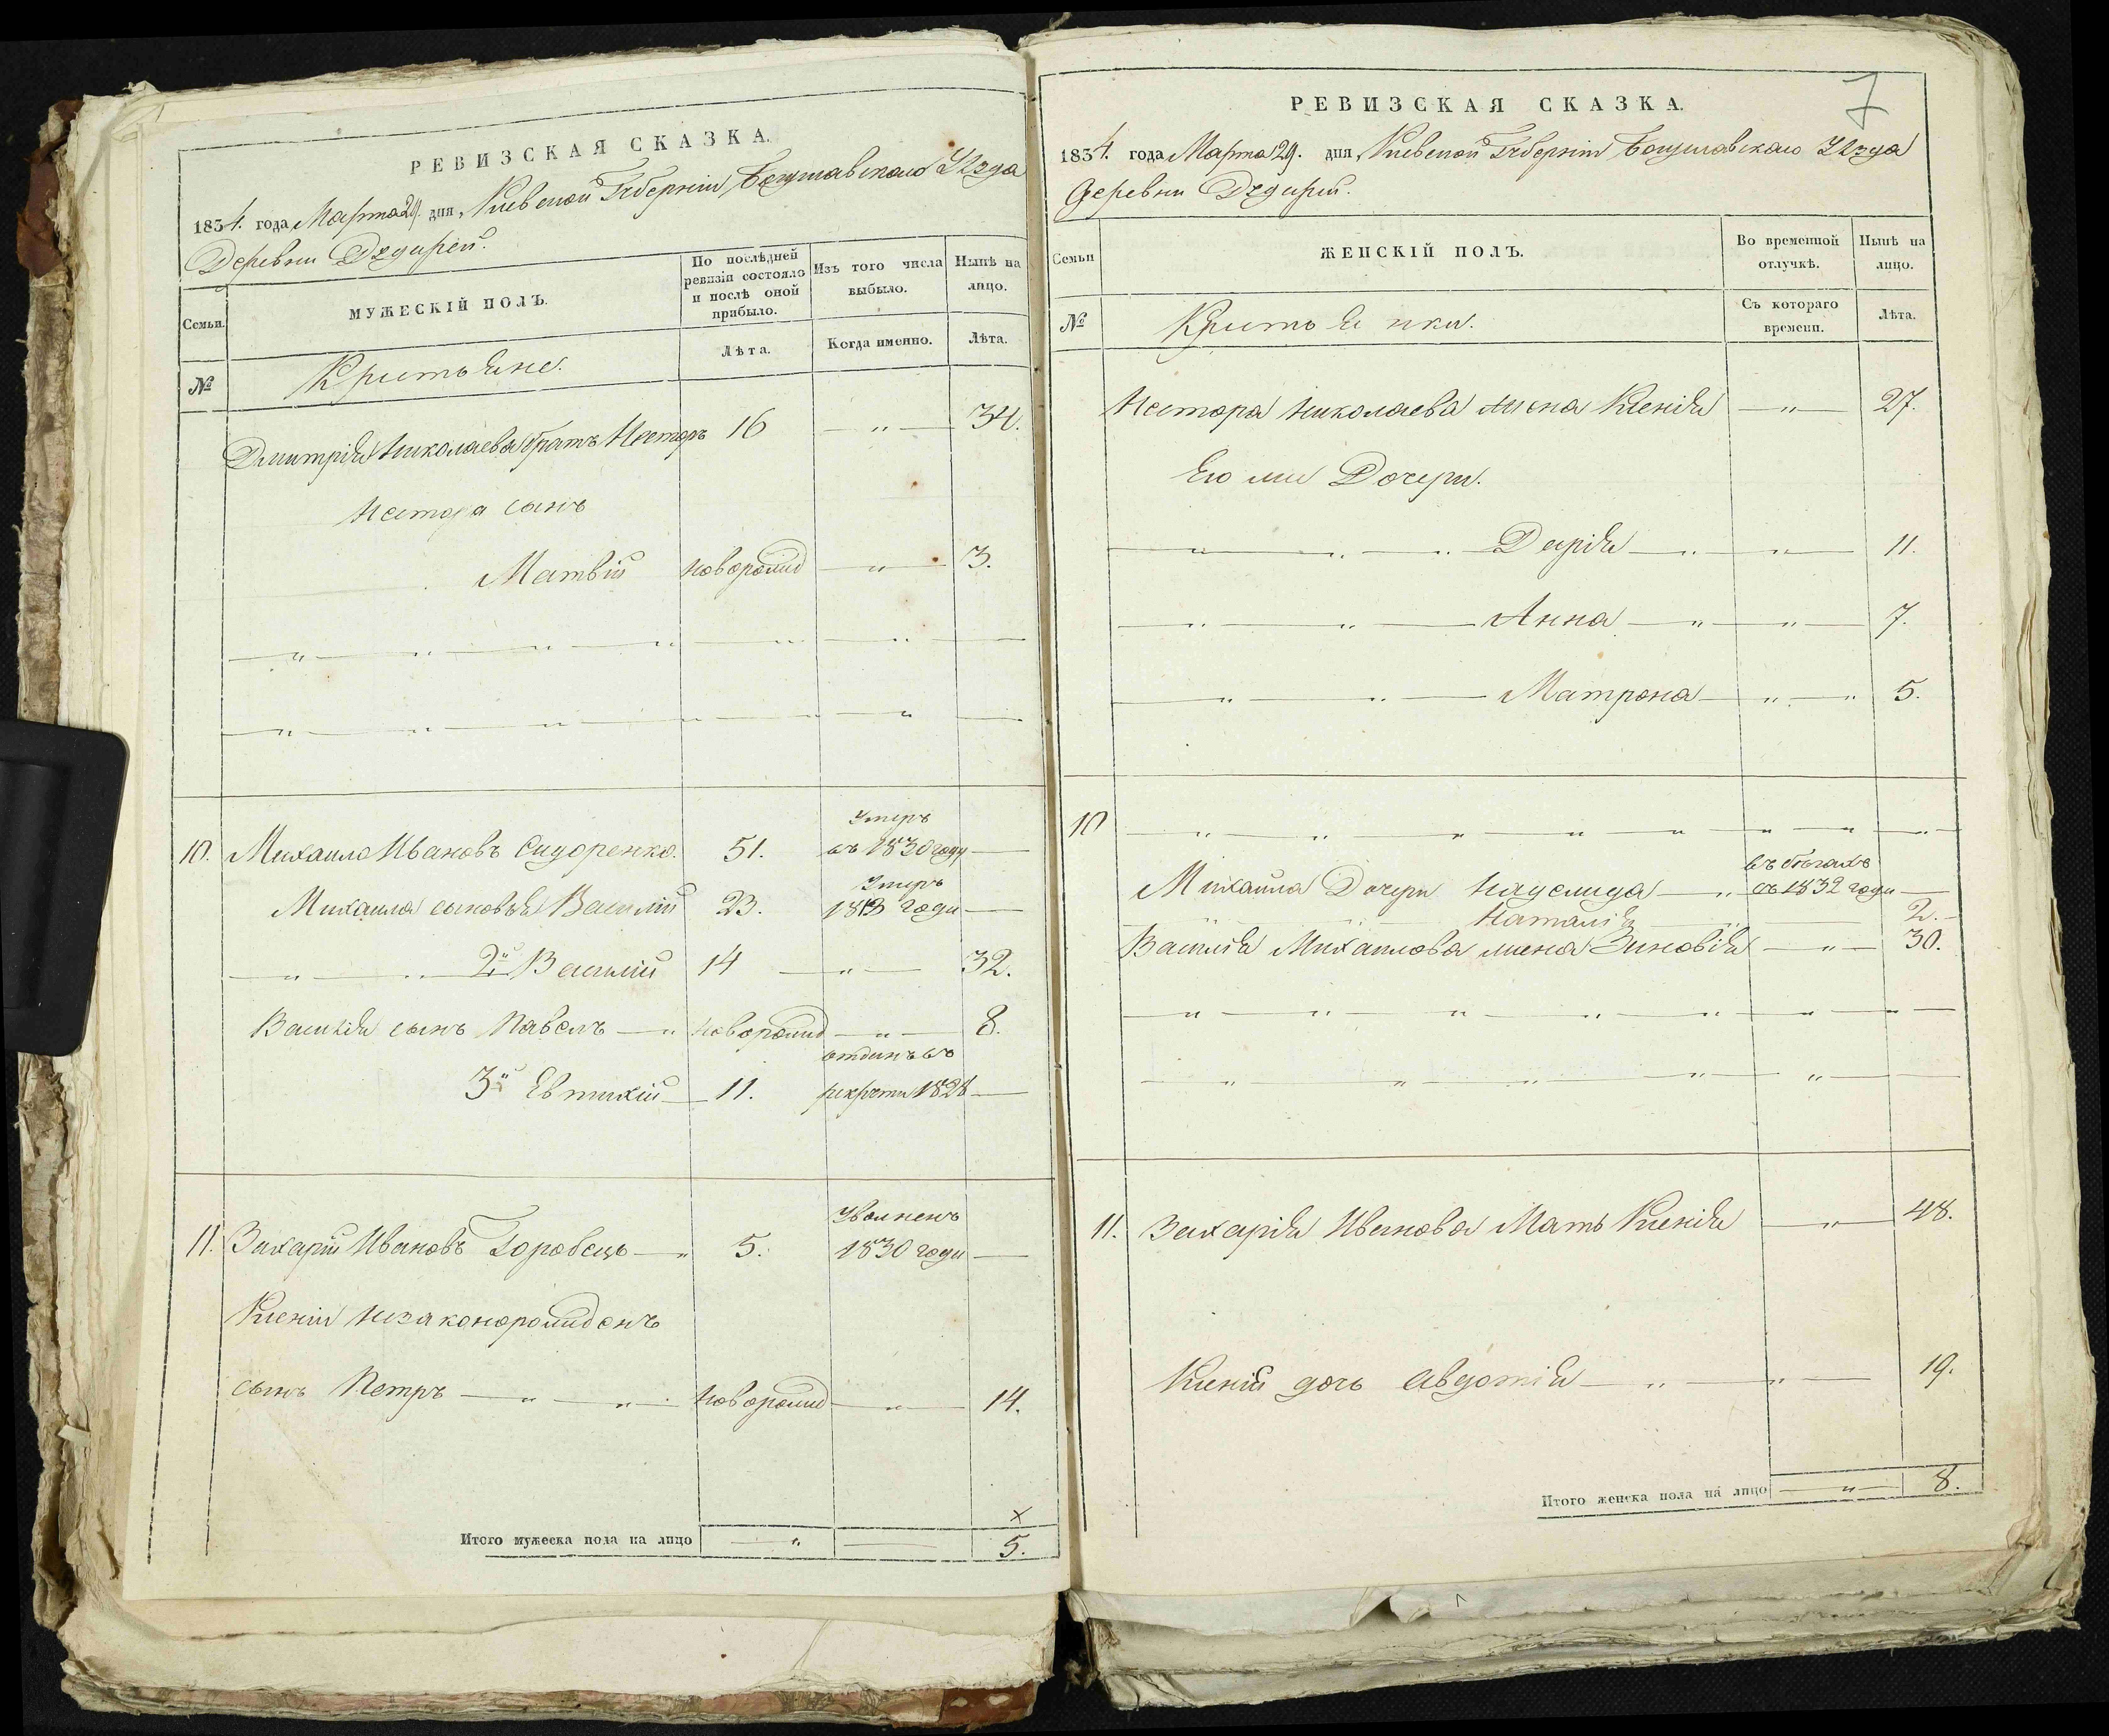 РЕВИЗСКАЯ СКАЗКА.
1834. года Марта 29. дня, Киевской Губернiи Богуславского Уѣзда
Деревни Дѣдирей.
Семьи.
МУЖЕСКІЙ ПОЛЪ.
По послѣдней ревизіи состояло и послѣ оной прибыло.
Изъ того числа выбыло.
Нынѣ на лицо.
Лѣта.
Когда именно.
Лѣта.
№
Кристьяне.
Дмитрія Николаева братъ Несторъ 16 — " — 34.
Нестора сынъ
Матвій новорожд — " — 3.
10. Михаило Ивановъ Сидоренко. 51. Умеръ въ 1830 году —
Михаила сыновья Василій 23. Умеръ 18 годи —
— " — " — 2й Василій 14 — " — 32.
Василія сынъ Павелъ — " новорожд — " — 8.
3й Евтихій — 11. отдинъ въ рекрети 1828 —
11. Захарій Ивановъ Горобець — " 5. Уволненъ 1830 годи —
Ксеніи незаконорожденъ
сынъ Петръ — " — " — новорожд — " — 14.
×
Итого мужеска пола на лицо — " — 5.
7
РЕВИЗСКАЯ СКАЗКА.
1834. года Марта 29. дня, Киевской Губерніи Богуславского Уѣзда
деревни Дѣдирей.
Семьи
ЖЕНСКІЙ ПОЛЪ.
Во временной отлучкѣ.
Нынѣ на лицо.
Съ котораго времени.
Лѣта.
№
Кристьянки.
Нестора Николаева жена Ксенія — " — 27.
Его же Дочери.
— " — " — " — Дарія — " — " — 11.
— " — " — Анна — " — " — 7.
— " — " — Матрона — " — " 5.
10 — " — " — " — " — " — " — " — " —
Михаила Дочери — " въ бѣгахъ съ 1832 годи —
— " — " — Наталія — " — 2. —
Василія Михаилова жена Зиновія — " — 30.
11. Захарія Иванова Мать Ксенія — " — 48.
Ксеніи дочь Авдотія — " — " — 19.
Итого женска пола на лицо — " — 8.